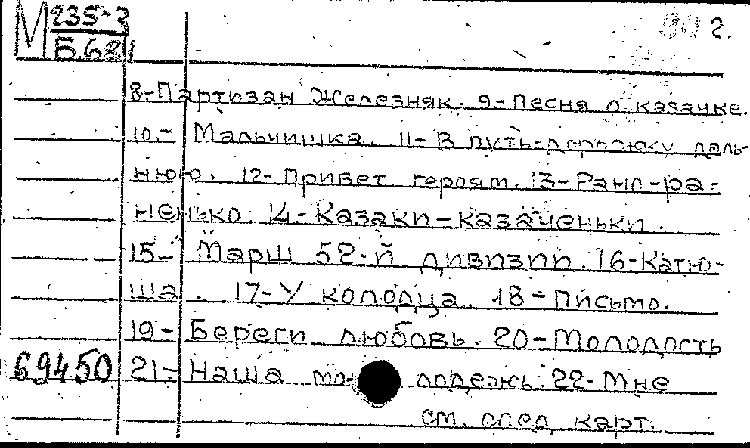 М 235-2
Б.681
2.
8-Партизан Железняк. 9-Песня о казачке.
10.- Мальчишка. 11-В путь-дорожку даль-
нюю. 12-Привет героям. 13-Рано-ра-
ненько. 14-Казаки-казаченьки.
15- Марш 52-й дивизии. 16-Катю-
ша. 17-У колодца. 18-Письмо.
19- Береги любовь. 20-Молодость
69450 21- Наша молодежь. 22-Мне
см. след. карт.